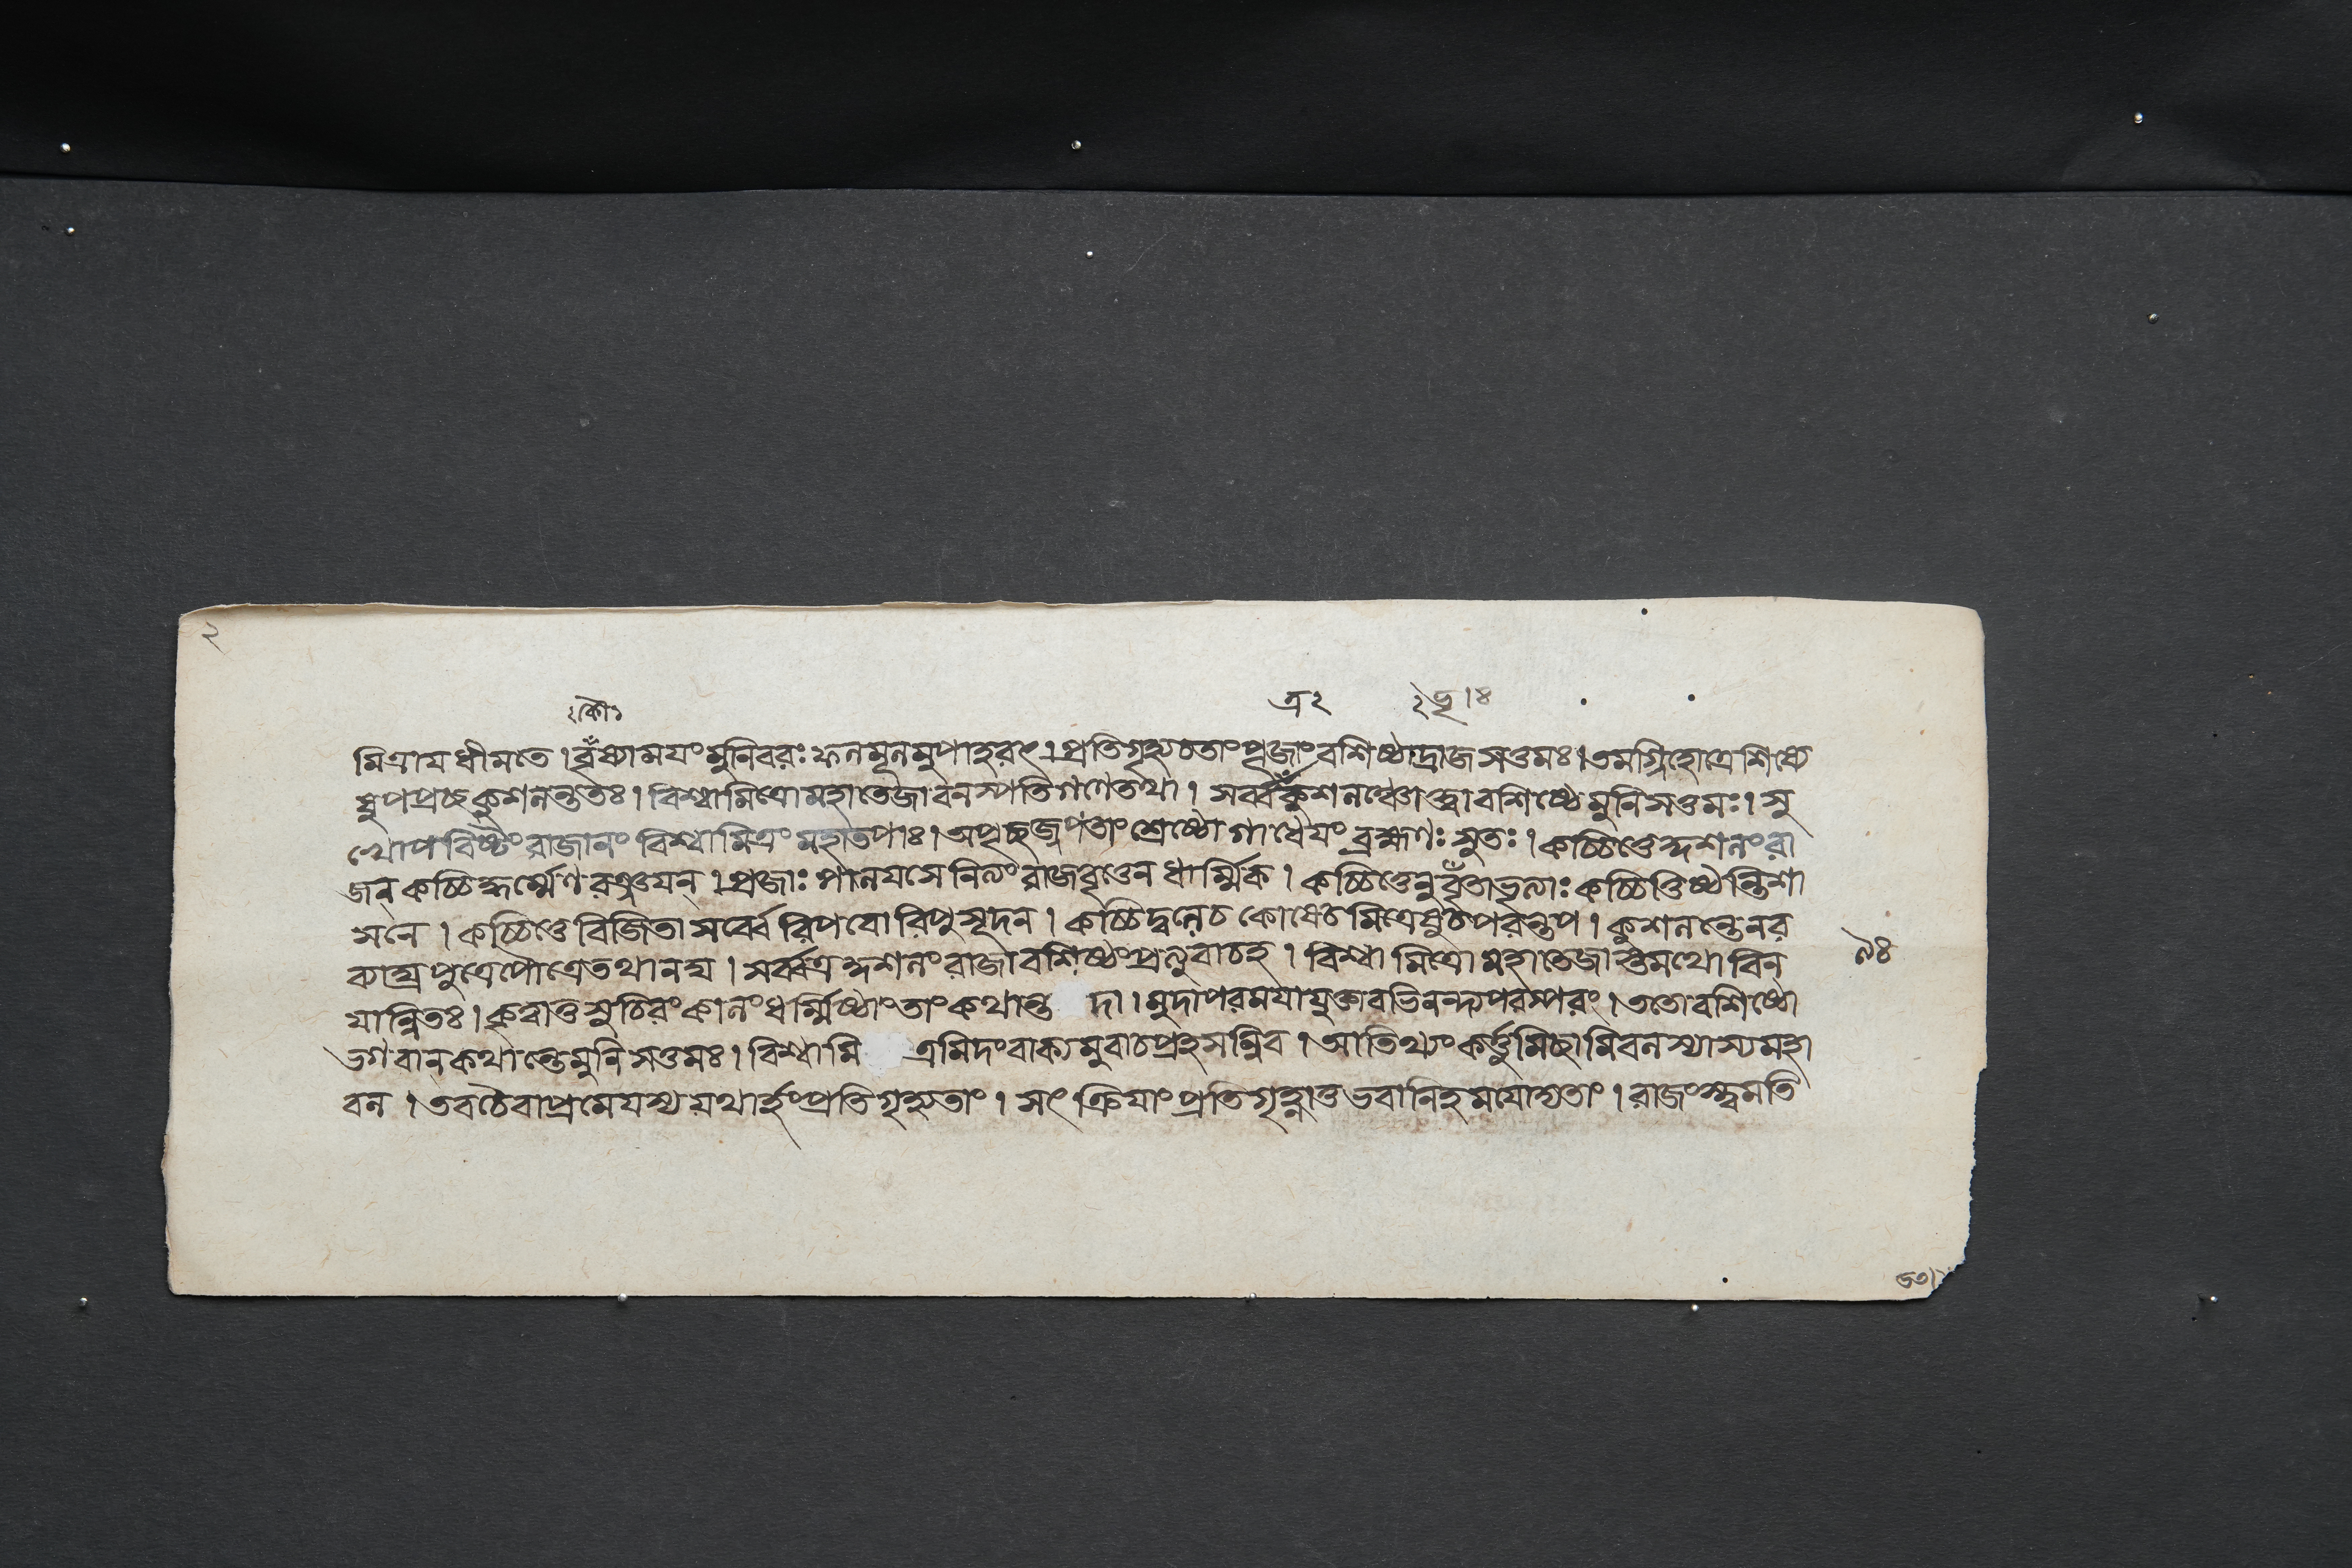 ২
কৌ২ ত্র২ ২ভৃ।ঃ
মিত্রায ধীমতে । বৃষ্যামযং মুনিবরঃ ফলমূলমুপাহরৎ । প্রতিগৃহ্য চ তাং পূজাং বশিষ্ঠাদ্রাজসত্তমঃ । তমগ্নিহোত্রে শিষ্যে
ষু পপ্রচ্ছ কুশলন্ততঃ । বিশ্বামিত্রো মহাতেজা বনস্পতিগণে তথা । সর্ব্বং কুশলঞ্চোক্ত্বা বশিষ্ঠো মুনিসত্তমঃ । সু
খোপবিষ্টং রাজানং বিশ্বামিত্রং মহাতপাঃ । অপৃচ্ছজ্জপতাং শ্রেষ্ঠো গাধেযং ব্রহ্মণঃ সুতঃ । কচ্চিত্তে কুশলং রা
জন্ কচ্চিদ্ধর্ম্মেণ রঞ্জযন্ । প্রজাঃ পালযসে নিত্যং রাজবৃত্তেন ধার্ম্মিক । কচ্চিত্তে সুবৃতা ভৃত্যাঃ কচ্চিত্তিষ্ঠন্তি শা
সনে । কচ্চিত্তে বিজিতা সর্ব্বে রিপবো রিপুসূদন । কচ্চিদ্বলে চ কোষে চ মিত্রেষু চ পরন্তপ । কুশলন্তে নর
ব্যাঘ্র পুত্রে পৌত্রে তথানঘ । সর্ব্বত্র কুশলং রাজা বশিষ্ঠং প্রত্যুবাচ হ । বিশ্বামিত্রো মহাতেজাস্তমথো বিন
যান্বিতঃ । কৃত্বা তু সুচিরং কালং ধর্ম্মিষ্ঠাং তাং কথান্ত দা । মুদা পরমযা যুক্তাবভিনন্দ্য পরস্পরং । ততো বশিষ্ঠো
ভগবান্ কথান্তে মুনিসত্তমঃ । বিশ্বামি ত্রমিদং বাক্যমুবাচ প্রহসন্নিব । আতিথ্যং কর্ত্তুমিচ্ছামি বলস্যাস্য মহা
বল । তব চৈবাপ্রমেযস্য যথার্হং প্রতিগৃহ্যতাং । সৎক্রিযাং প্রতিগৃহ্ণাতু ভবানিহ মযোদ্যতাং । রাজংস্ত্বমতি